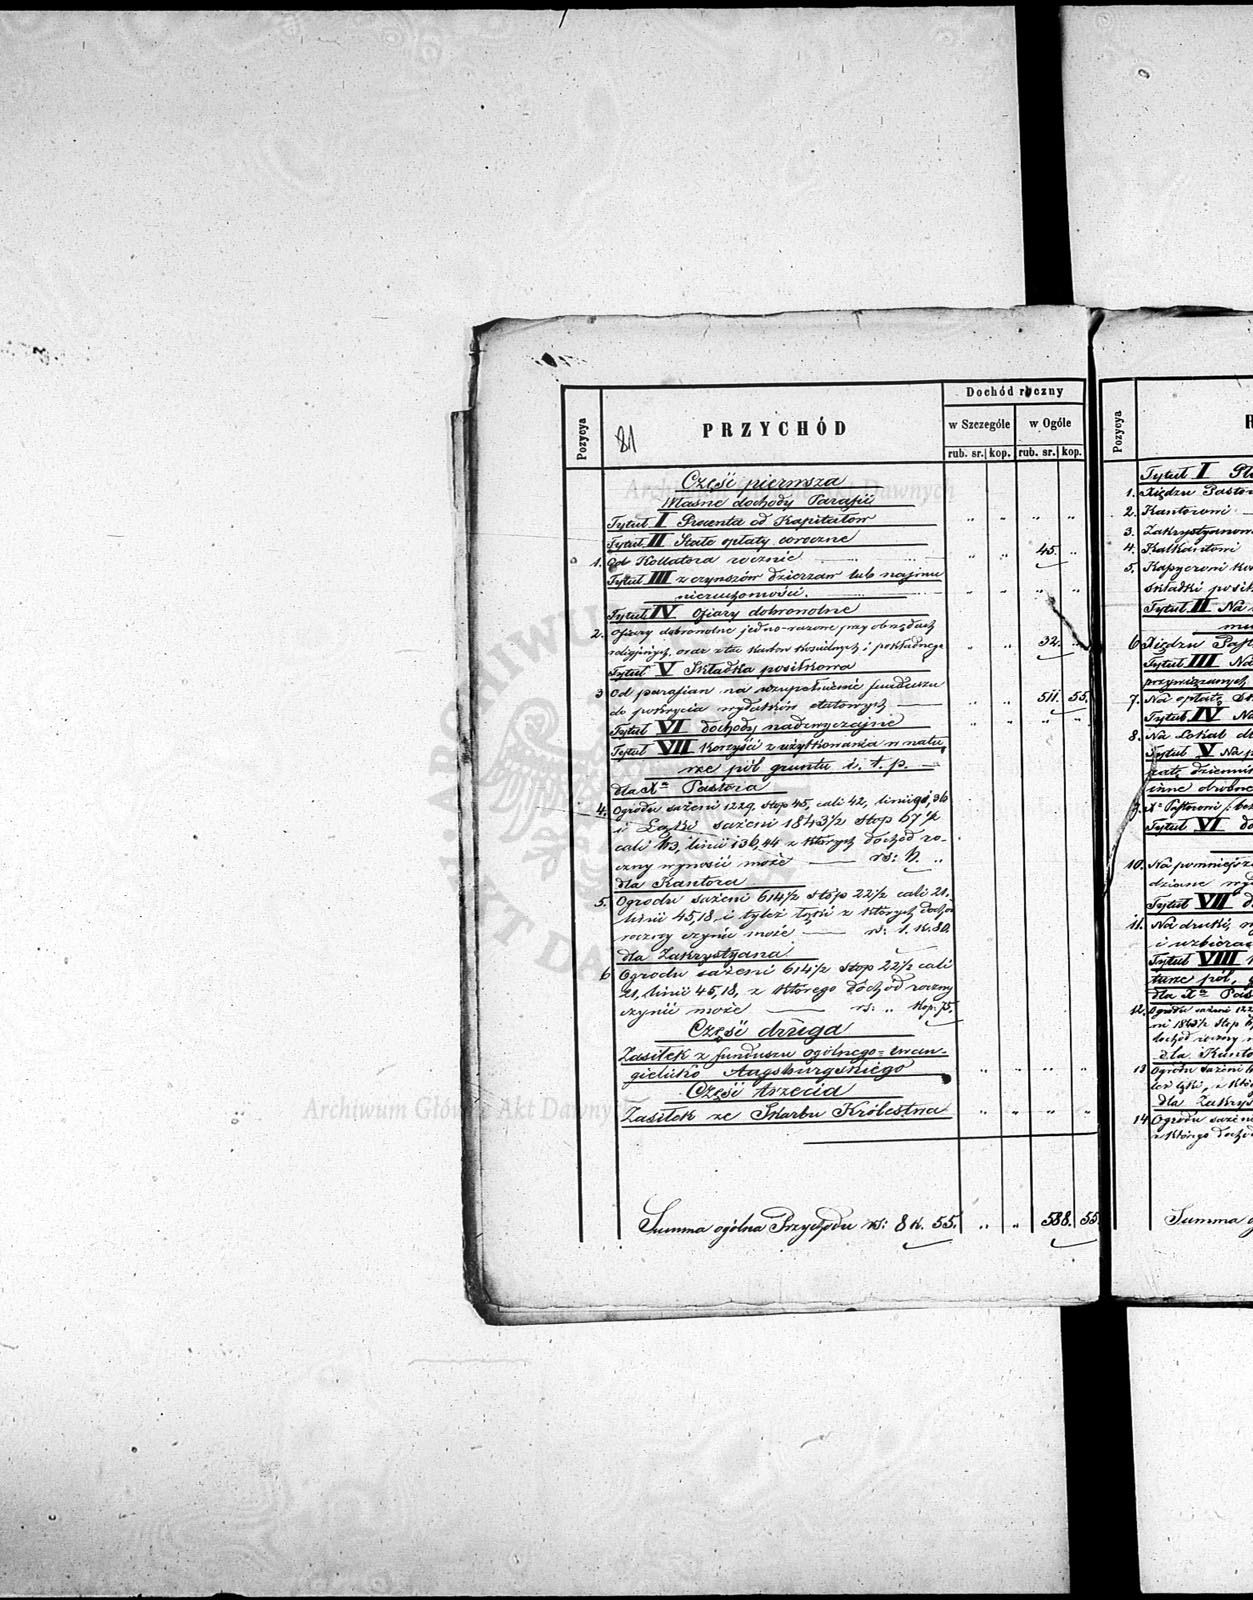 Pozycya
81
PRZYCHÓD
Dochód roczny
w Szczególe
w Ogóle
rub. sr. kop. rub. sr. kop.
Część pierwsza
Własne dochody Parafii
Tytuł I Procenta od Kapitałów „ „ „ „
Tytuł II Stałe opłaty coroczne
1. Od Kollatora rocznie „ „ 45. „
Tytuł III z czynszów dzierzaw lub najmu
nieruchomości. „ „ „ „
Tytuł IV Ofiary dobrowolne
2. Ofiary dobrowolne jedno-razowe przy obrzędach
religijnych, oraz z tac skarbon kościelnych i pokładnego „ „ 32. „
Tytuł V Składka posiłkowa
3 Od parafian na uzupełnienie funduszu
do pokrycia wydatków etatowych „ „ 511. 55.
Tytuł VI dochody nadzwyczajne „ „ „ „
Tytuł VII Korzyści z użytkowania w natu,
rze pól gruntu i. t. p.
dla Xa Pastora
4. Ogrodu sążeni 1229, stop 45, cali 42, linii 96
i Łąki sążeni 1843½ stop 67½
cali 113, linii 136,44 z których dochód ro-
czny wynosić może rs: 6. „
dla Kantora
5. Ogrodu sążeni 614½ stóp 22½ cali 21.
linii 45,18 i tyleż łąki z których dochód
roczny czynić może rs: 1. k. 80.
dla Zakrystyana
6 Ogrodu sążeni 614½ stop 22½ cali
21, linii 45,18, z którego dochód roczny
czynić może rs: „ kop: 75.
Część druga
Zasiłek z funduszu ogólnego ewan-
gielicko Augsburgskiego „ „ „ „
Część trzecia
Zasiłek ze Skarbu Królestwa „ „ „ „
Summa ogólna Przychodu rs: 8 k. 55. „ „ 588. 55.
Pozycya
R
Tytuł I
1. Xiędzu Pastor
2. Kantorowi
3. Zakrystyanowi
4. Kalkantowi
5.
składki posił
Tytuł II Na
6 Xiędzu Past
Tytuł III Na
przywiązanych
7. Na opłatę
Tytuł IV Na
8. Na Lokal
Tytuł V Na
inne drobne
9. Xu Pastorowi
Tytuł VI
10. Na pomniejsze
Tytuł VII
11. Na druki,
Tytuł VIII
dla Xa Pas
12. Ogrodu sążeni 122
dochód roczny
dla Kanto
13 Ogrodu sążeni
dla Zakrys
14. Ogrodu sążeni
z którego dochód
Summa
Archiwum Główne Akt Dawnych
Archiwum Główne Akt Dawnych